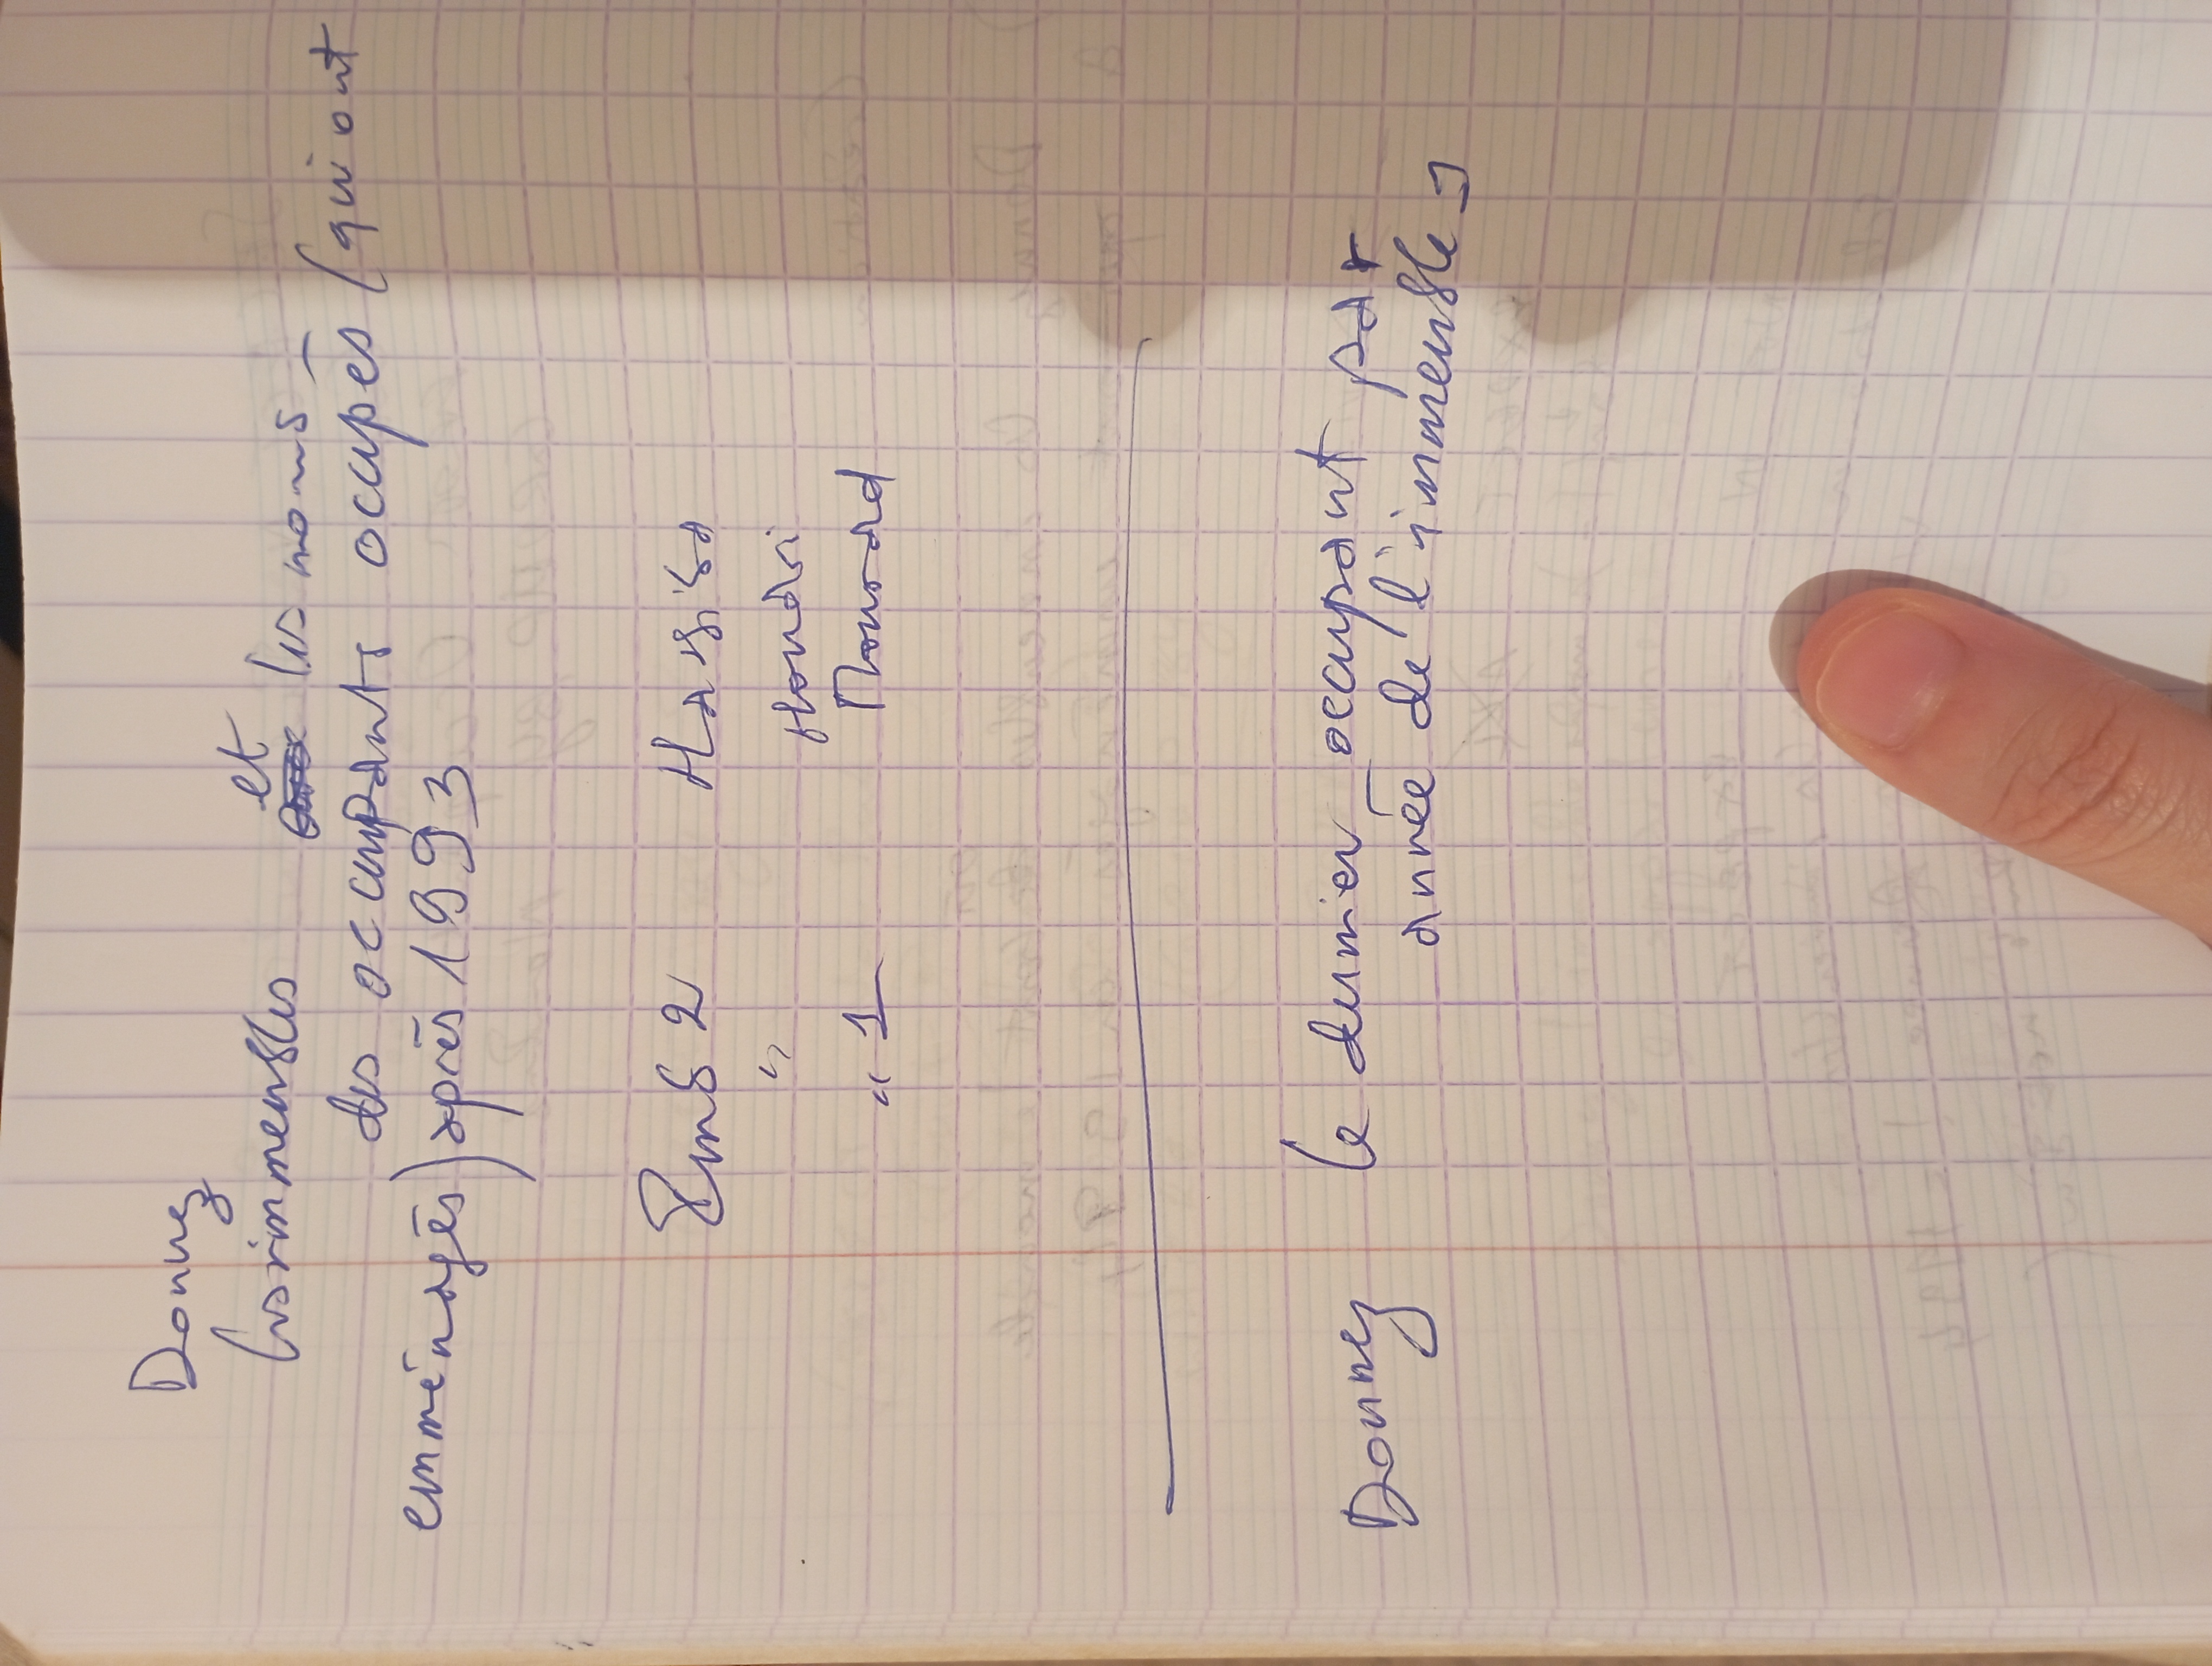 Donnez
les immeubles et les noms
des occupants occupés (qui ont
emménagés) après 1993
Imb 2 Hasiba
" Houari
" 1 Mourad
Donnez le dernier occupant par
année de l'immeuble 1